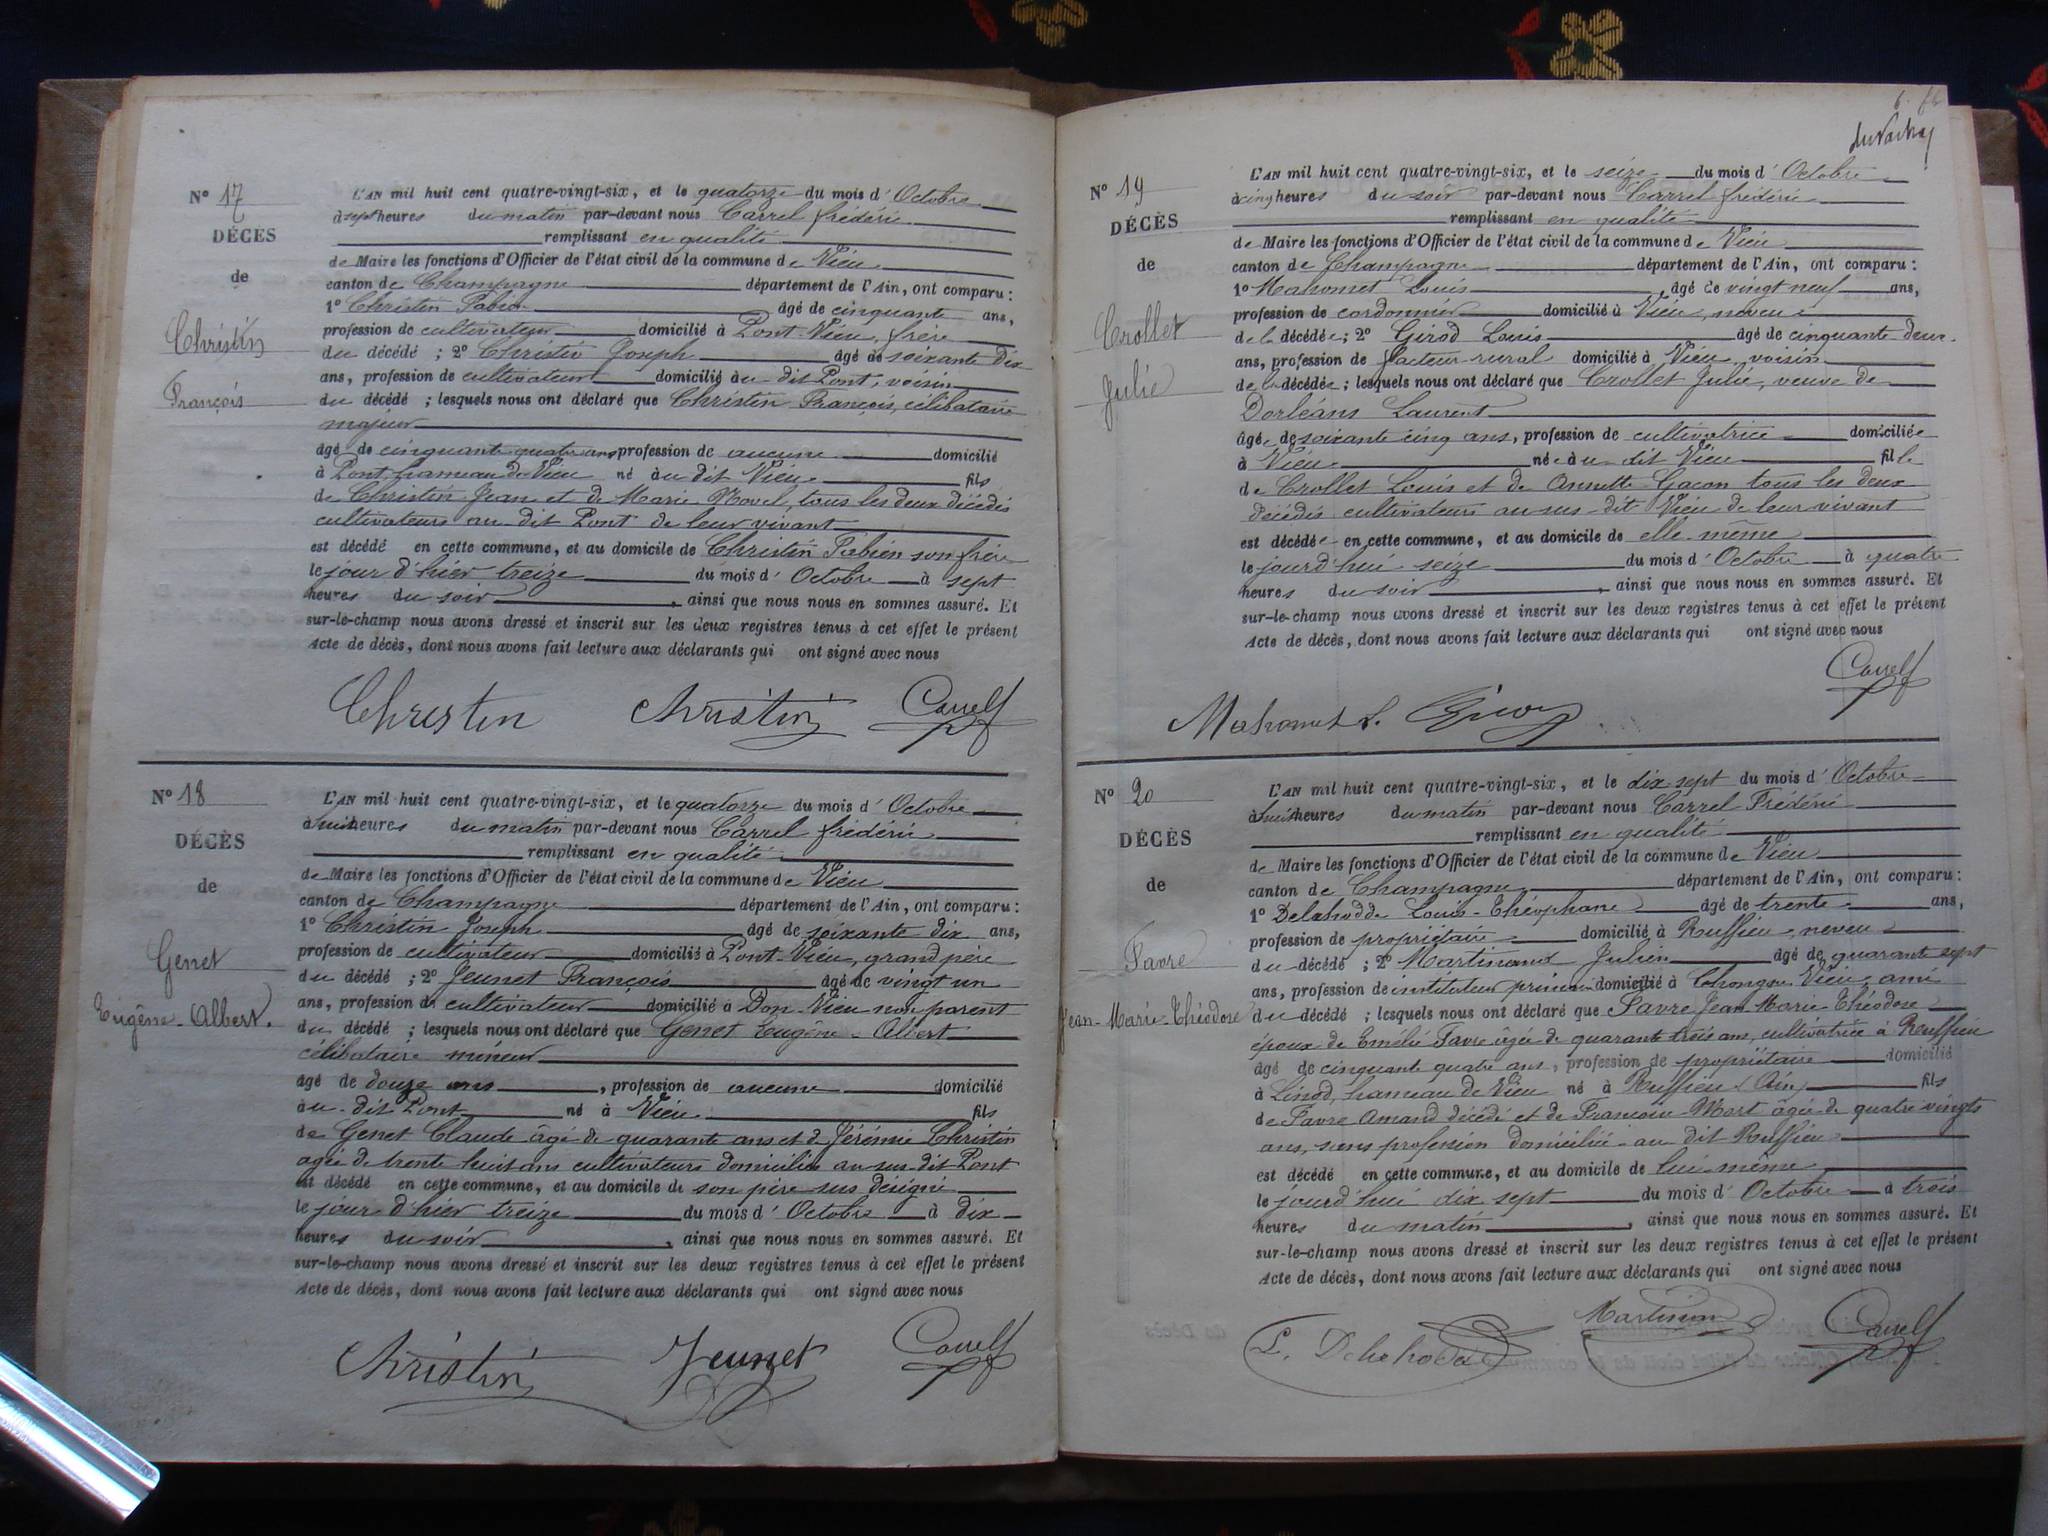 N° 17
DÉCÈS
de
Christin
François
L'AN mil huit cent quatre-vingt-six, et le quatorze du mois d'Octobre
à sept heures du matin par-devant nous Carrel frédéric
remplissant en qualité
de Maire les fonctions d'Officier de l'état civil de la commune de Vieu
canton de Champagne département de l'Ain, ont comparu :
1° Christin Fabien âgé de cinquante ans,
profession de cultivateur domicilié à Pont-Vieu, frère
du décédé ; 2° Christin Joseph âgé de soixante dix
ans, profession de cultivateur domicilié au dit Pont, voisin
du décédé ; lesquels nous ont déclaré que Christin François, célibataire
majeur
âgé de cinquante quatre ans profession de aucune domicilié
à Pont hameau de Vieu né au dit Vieu fils
de Christin Jean et de Marie tous les deux décédés
cultivateurs au-dit Pont de leur vivant
est décédé en cette commune, et au domicile de Christin Fabien son frère
le jour d'hier treize du mois d'Octobre à sept
heures du soir, ainsi que nous nous en sommes assuré. Et
sur-le-champ nous avons dressé et inscrit sur les deux registres tenus à cet effet le présent
Acte de décès, dont nous avons fait lecture aux déclarants qui ont signé avec nous
Christin Christin Carrel f
N° 18
DÉCÈS
de
Genet
Eugène-Albert.
L'AN mil huit cent quatre-vingt-six, et le quatorze du mois d'Octobre
à huit heures du matin par-devant nous Carrel frédéric
remplissant en qualité
de Maire les fonctions d'Officier de l'état civil de la commune de Vieu
canton de Champagne département de l'Ain, ont comparu :
1° Christin Joseph âgé de soixante dix ans,
profession de cultivateur domicilié à Pont-Vieu, grand père
du décédé ; 2° Jeunet François âgé de vingt un
ans, profession de cultivateur domicilié à Don-Vieu non parent
du décédé ; lesquels nous ont déclaré que Genet Eugène-Albert
célibataire mineur
âgé de douze ans, profession de aucune domicilié
au-dit Pont né à Vieu fils
de Genet Claude âgé de quarante ans et de Jérémie Christin
agée de trente huit ans cultivateurs domiciliés au sus-dit Pont
est décédé en cette commune, et au domicile de son père sus désigné
le jour d'hier treize du mois d'Octobre à dix
heures du soir, ainsi que nous nous en sommes assuré. Et
sur-le-champ nous avons dressé et inscrit sur les deux registres tenus à cet effet le présent
Acte de décès, dont nous avons fait lecture aux déclarants qui ont signé avec nous
Christin Jeunet Carrel f
N° 19
DÉCÈS
de
Crollet
Julie
L'AN mil huit cent quatre-vingt-six, et le seize du mois d'Octobre
à cinq heures du soir par-devant nous Carrel frédéric
remplissant en qualité
de Maire les fonctions d'Officier de l'état civil de la commune de Vieu
canton de Champagne département de l'Ain, ont comparu :
1° Mahomet Louis âgé de vingt neuf ans,
profession de cordonnier domicilié à Vieu, neveu
de la décédée ; 2° Girod Louis âgé de cinquante deux
ans, profession de facteur rural domicilié à Vieu, voisin
de la décédée ; lesquels nous ont déclaré que Crollet Julie, veuve de
Dorléans Laurent
âgée de soixante cinq ans, profession de cultivatrice domiciliée
à Vieu née au dit Vieu fille
de Crollet Louis et de Annette Gacon tous les deux
décédés cultivateurs au sus-dit Vieu de leur vivant
est décédée en cette commune, et au domicile de elle-même
le jourd'hui seize du mois d'Octobre à quatre
heures du soir, ainsi que nous nous en sommes assuré. Et
sur-le-champ nous avons dressé et inscrit sur les deux registres tenus à cet effet le présent
Acte de décès, dont nous avons fait lecture aux déclarants qui ont signé avec nous
Carrel f
Mahomet L. Girod
N° 20
DÉCÈS
de
Favre
Jean-Marie-Théodose
L'AN mil huit cent quatre-vingt-six, et le dix sept du mois d'Octobre
à huit heures du matin par-devant nous Carrel Frédéric
remplissant en qualité
de Maire les fonctions d'Officier de l'état civil de la commune de Vieu
canton de Champagne département de l'Ain, ont comparu :
1° Delahodde Louis-Théophane âgé de trente ans,
profession de propriétaire domicilié à Ruffieu, neveu
du décédé ; 2° Martinaud Julien âgé de quarante sept
ans, profession de instituteur domicilié à Chongne Vieu ami
du décédé ; lesquels nous ont déclaré que Favre Jean Marie Théodose
époux de Emélie Favre âgée de quarante trois ans, cultivatrice à Ruffieu
âgé de cinquante quatre ans, profession de propriétaire domicilié
à Linod, hameau de Vieu né à Ruffieu (Ain) fils
de Favre Amand décédé et de Françoise Mort âgée de quatre vingts
ans, sans profession domiciliée au dit Ruffieu
est décédé en cette commune, et au domicile de lui-même
le jourd'hui dix sept du mois d'Octobre à trois
heures du matin, ainsi que nous nous en sommes assuré. Et
sur-le-champ nous avons dressé et inscrit sur les deux registres tenus à cet effet le présent
Acte de décès, dont nous avons fait lecture aux déclarants qui ont signé avec nous
L. Delahodde Carrel f